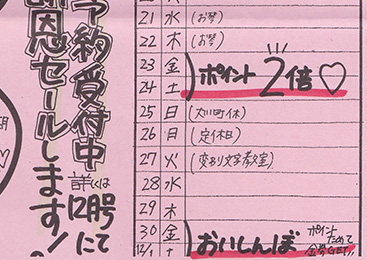 21 水 (お琴)
22 木 (お琴)
23 金
24 土
ポイント2倍♡
25 日
26 月 (定休日)
27 火 (変わり文字教室)
28 水
29 木
30 金
12/1 土
おいしんぼ
ポイント
ためて
予約受付中
恩セールします!
詳しくは
12月号にて